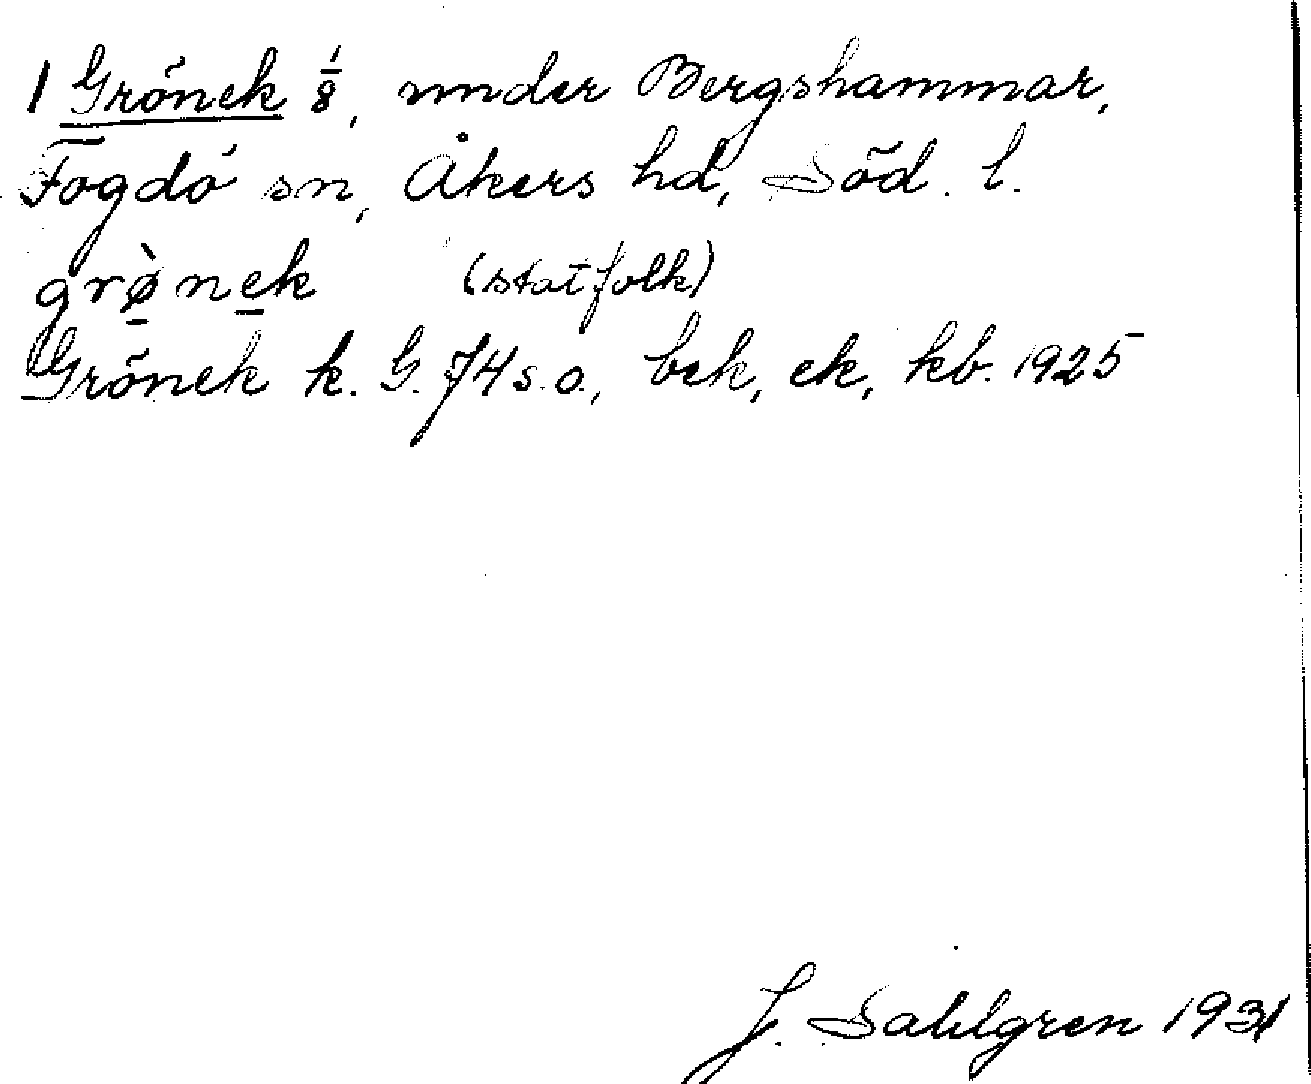 1 Grönek 1/8, under Bergshammar,
Fogdö sn, Åkers hd, Söd. l.
grø̀nek (statfolk)
Grönek k. G. 74 s. o., bek, ek, kb. 1925
J. Sahlgren 1931